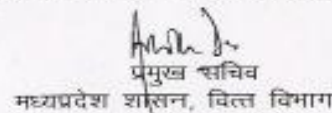 प्रमुख सचिव
मध्यप्रदेश शासन, वित्त विभाग